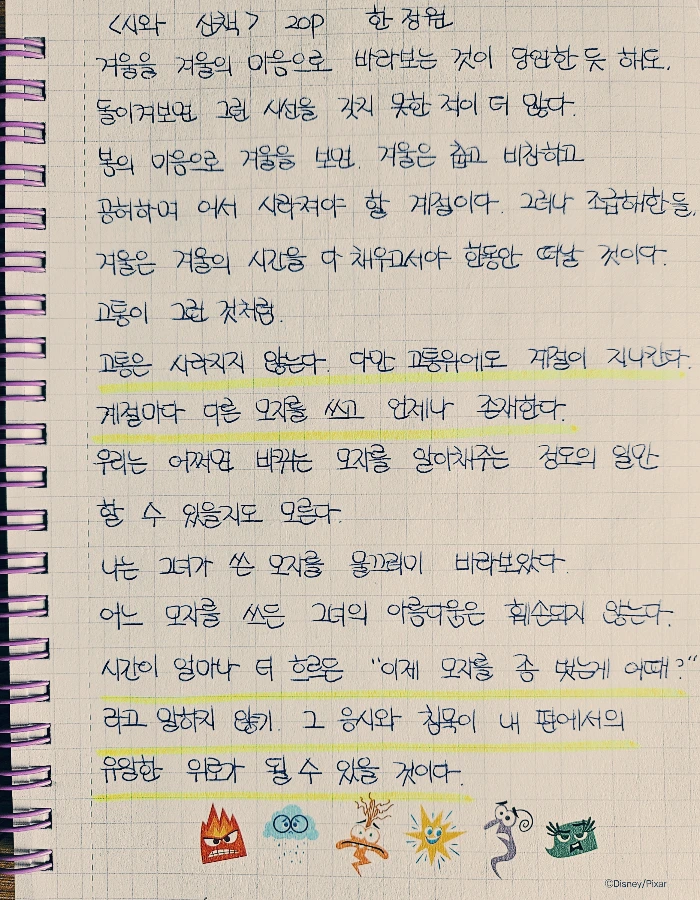 <시와 산책> 20p 한정원
겨울을 겨울의 마음으로 바라보는 것이 당연한 듯 해도,
돌이켜보면 그런 시선을 갖지 못한 적이 더 많다.
봄의 마음으로 겨울을 보면, 겨울은 춥고 비참하고
공허하며 어서 사라져야 할 계절이다. 그러나 조급해한들,
겨울은 겨울의 시간을 다 채우고서야 한동안 떠날 것이다.
고통이 그런 것처럼.
고통은 사라지지 않는다. 다만 고통위에도 계절이 지나간다.
계절마다 다른 모자를 쓰고 언제나 존재한다.
우리는 어쩌면 바뀌는 모자를 알아채주는 정도의 일만
할 수 있을지도 모른다.
나는 그녀가 쓴 모자를 물끄러미 바라보았다.
어느 모자를 쓰든 그녀의 아름다움은 훼손되지 않는다.
시간이 얼마나 더 흐르든 "이제 모자를 좀 벗는게 어때?"
라고 말하지 않기. 그 응시와 침묵이 내 편에서의
유일한 위로가 될 수 있을 것이다.
©Disney/Pixar